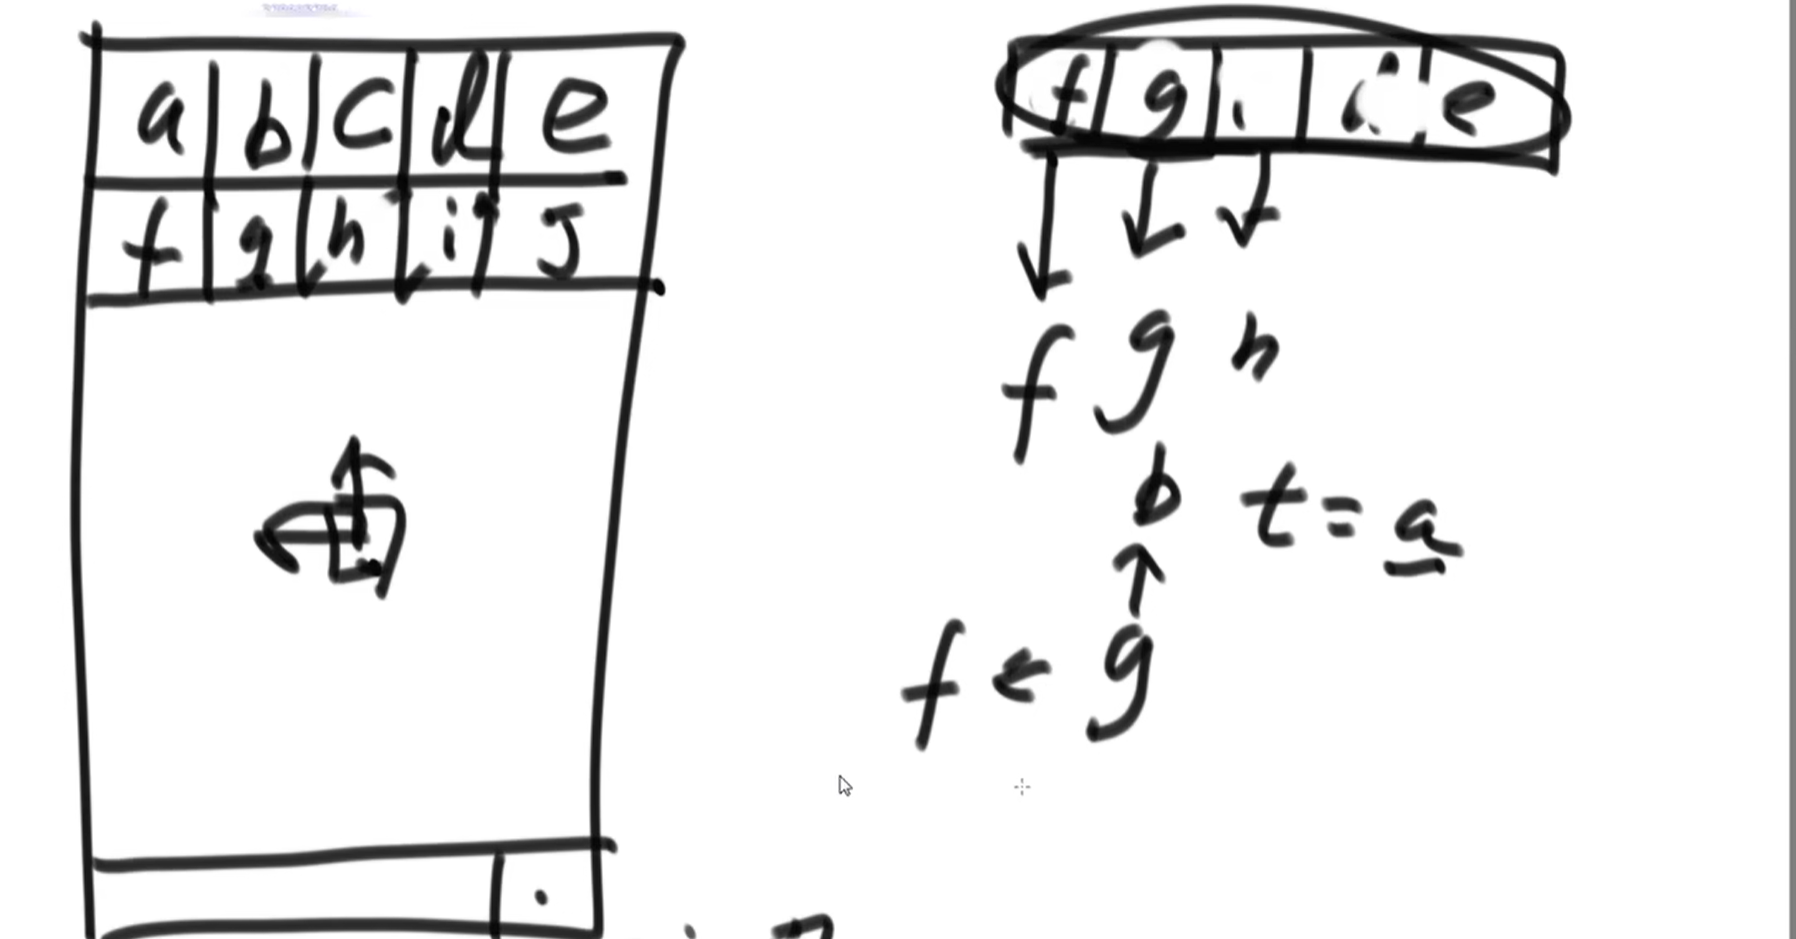 a b c d e
f g h i j
f g i e
f g h
b t = a
f ← g